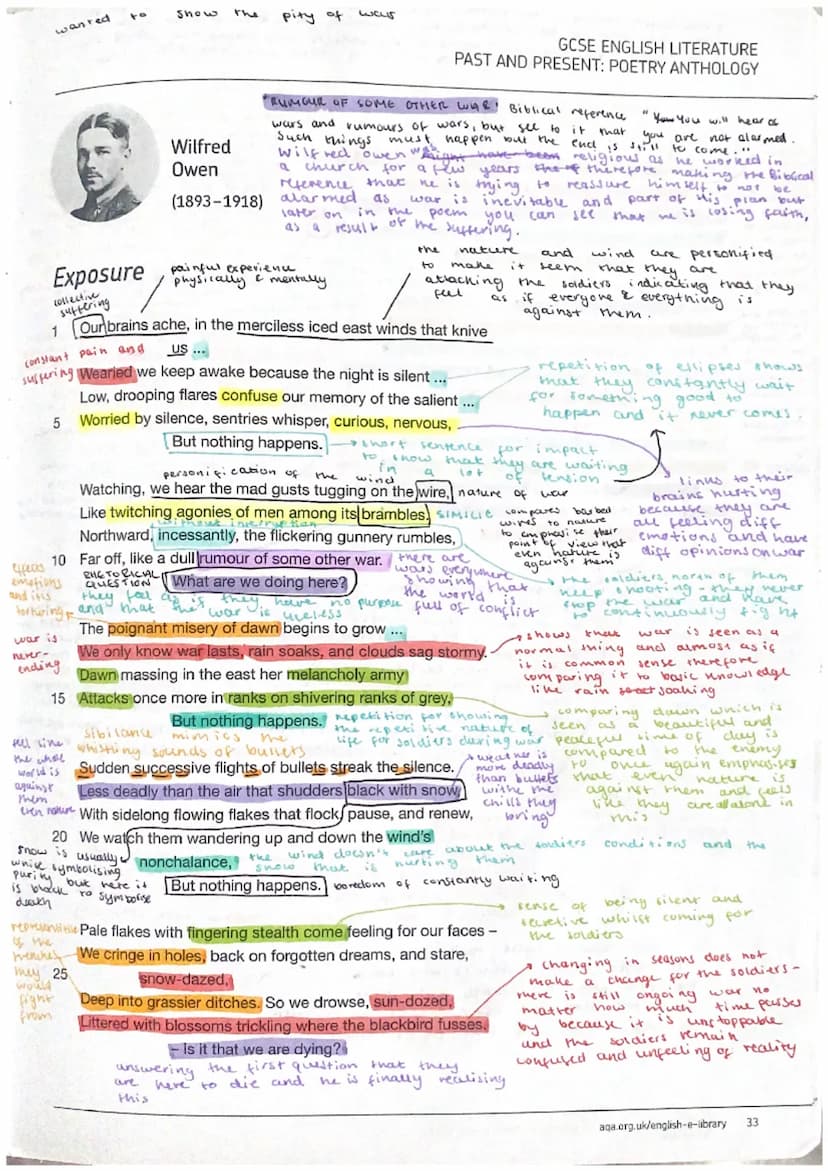 wanted to show the pity of war
GCSE ENGLISH LITERATURE
PAST AND PRESENT: POETRY ANTHOLOGY
Wilfred
Owen
(1893–1918)
"RUMOUR OF SOME OTHER WAR" Biblical reference "You will hear of
wars and rumours of wars, but see to it that you are not alarmed.
Such things must happen but the end is still to come."
Wilfred owen was religious as he worked in
a church for a few years therefore making the Biblical
reference that he is trying to reassure himself to not be
alarmed as war is inevitable and part of His plan but
later on in the poem you can see that he is losing faith,
as a result of the suffering.
Exposure
painful experience
physically & mentally
the nature and wind are personified
to make it seem that they are
attacking the soldiers indicating that they
feel as if everyone & everything is
against them.
collective
suffering
1 Our brains ache, in the merciless iced east winds that knive
us ...
constant pain and
suffering
Wearied we keep awake because the night is silent ...
Low, drooping flares confuse our memory of the salient ...
5 Worried by silence, sentries whisper, curious, nervous,
But nothing happens.
repetition of ellipses shows
that they constantly wait
for something good to
happen and it never comes.
short sentence for impact
to show that they are waiting
in a lot of tension
links to their
brains hurting
because they are
all feeling diff
emotions and have
diff opinions on war
personification of the wind
Watching, we hear the mad gusts tugging on the wire,
nature of war
Like twitching agonies of men among its brambles.
SIMILIE compares barbed
wires to nature
to emphasise their
point of view that
even nature is
against them
without interruption
Northward, incessantly, the flickering gunnery rumbles,
10 Far off, like a dull rumour of some other war.
there are
wars everywhere
showing that
the world is
full of conflict
RHETORICAL
QUESTION
What are we doing here?
they feel as if they have no purpose
and that the war is useless
the soldiers, none of them
keep shooting - they never
stop the war and have
to continuously fight
effects
emotions
and it is
torturing
The poignant misery of dawn begins to grow ...
war is
never-
ending
We only know war lasts, rain soaks, and clouds sag stormy.
shows that war is seen as a
normal thing and almost as if
it is common sense therefore
comparing it to basic knowledge
like rain soaking
Dawn massing in the east her melancholy army
15 Attacks once more in ranks on shivering ranks of grey,
But nothing happens.
repetition for showing
the repetitive nature of
life for soldiers during war
comparing dawn which is
seen as a beautiful and
peaceful time of day is
compared to the enemy
to once again emphasises
that even nature is
against them and feels
like they are all alone in
this
sibilance mimics the
whistling sounds of bullets
Sudden successive flights of bullets streak the silence.
feel like
the whole
world is
against
them
even nature
Less deadly than the air that shudders black with snow,
weather is
more deadly
than bullets
with the
chills they
bring
With sidelong flowing flakes that flock, pause, and renew,
20 We watch them wandering up and down the wind's
nonchalance,
the wind doesn't care about the soldiers conditions and the
snow that is hurting them
snow is usually
white symbolising
purity but here it
is black to symbolise
death
But nothing happens.
boredom of constantly waiting
Pale flakes with fingering stealth come feeling for our faces –
sense of being silent and
secretive whilst coming for
the soldiers
representitive
of the
trenches
they
would
fight
from
We cringe in holes, back on forgotten dreams, and stare,
25 snow-dazed,
Deep into grassier ditches. So we drowse, sun-dozed,
Littered with blossoms trickling where the blackbird fusses.
– Is it that we are dying?
changing in seasons does not
make a change for the soldiers -
there is still ongoing war no
matter how much time passes
by because it is unstoppable
and the soldiers remain
confused and unfeeling of reality
answering the first question that they
are here to die and he is finally realising
this
aqa.org.uk/english-e-library 33